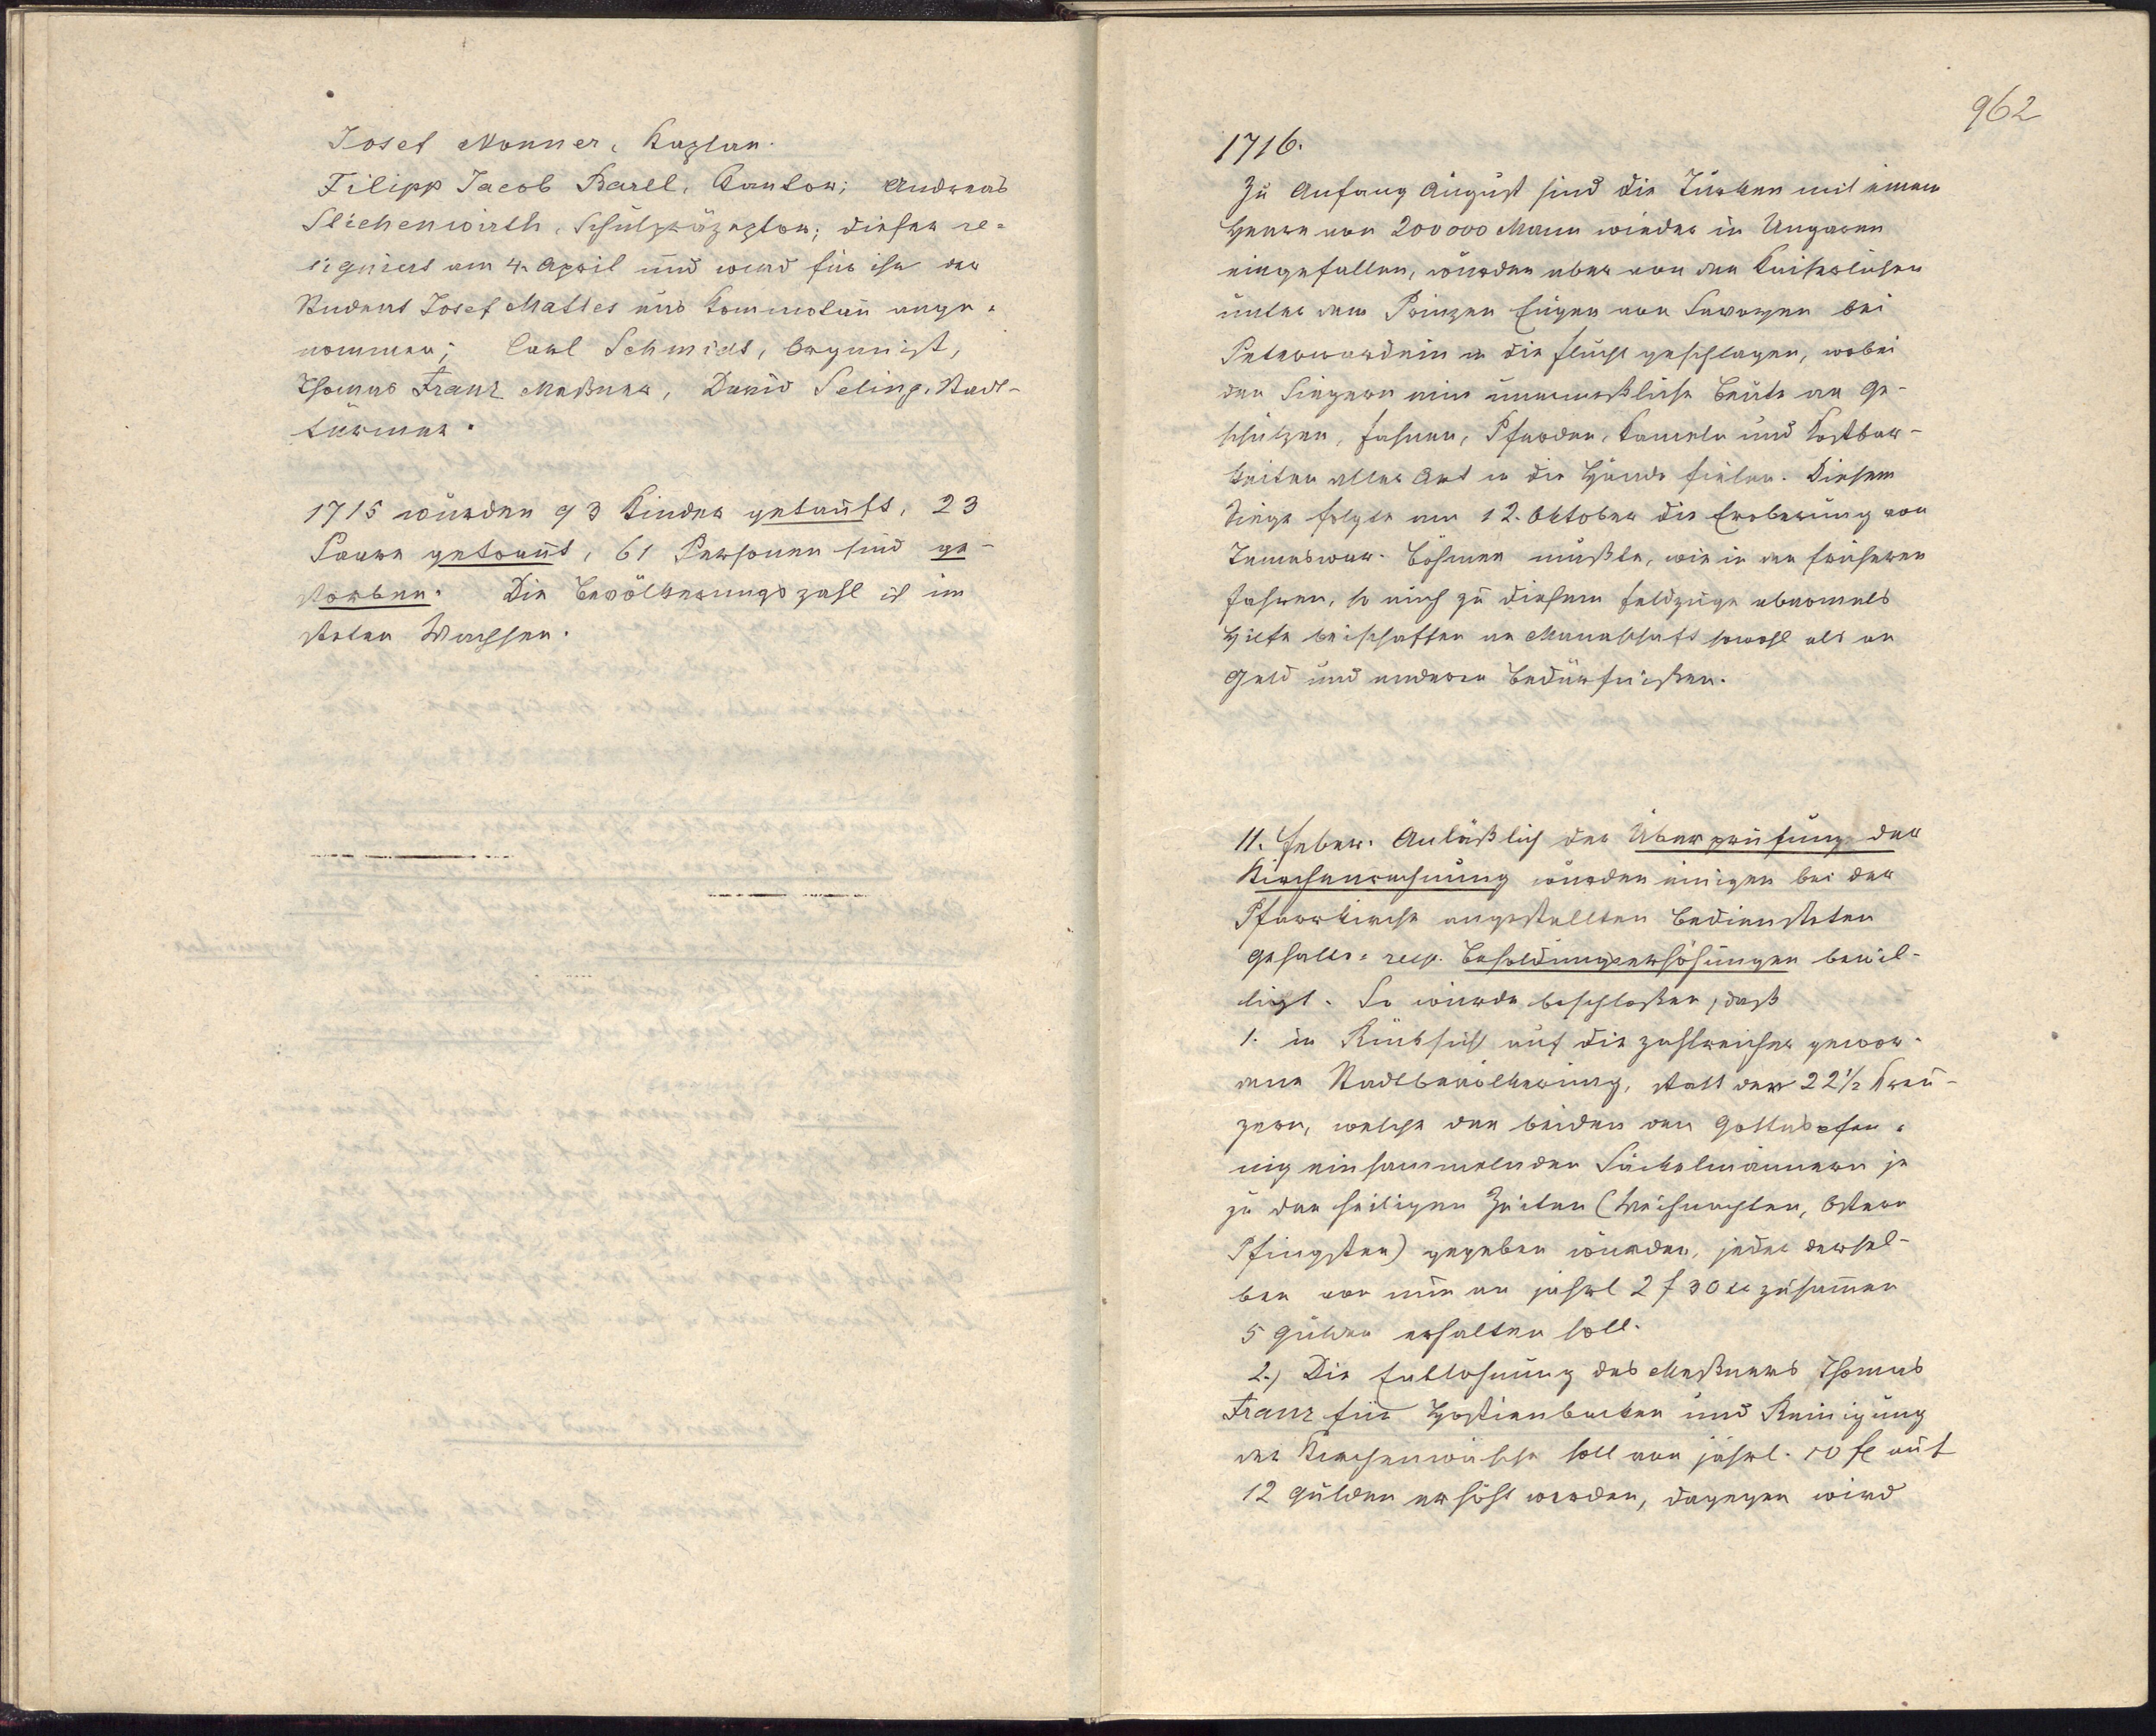 Josef Nonner, Kaplan.
Filipp Jacob Barel, Cantor; Andreas
Stichenwirth, Schulpräzeptor; dieser re-
signiert am 4. April und wird für ihn der
Student Josef Mattes aus Kommotau ange-
nommen; Carl Schmidt, Organist,
Thomas Franz Meßner, David Seling, Stadt-
türmer.
1715 wurden 93 Kinder getauft, 23
Paare getraut, 61 Personen sind ge-
storben. Die Bevölkerungszahl ist im
steten Wachsen.
962
1716.
Zu Anfang August sind die Türken mit einem
Heere von 200000 Mann wieder in Ungaren
eingefallen, wurden aber von den Kaiserlichen
unter dem Prinzen Eugen von Savoyen bei
Peterwardein in die Flucht geschlagen, wobei
den Siegern eine unermeßliche Beute an Ge-
schützen, Fahnen, Pferden, Kameln und Kostbar-
keiten aller Art in die Hände fielen. Diesem
Siege folgte am 12. Oktober die Eroberung von
Temeswar. Böhmen mußte, wie in den früheren
Jahren, so auch zu diesem Feldzuge abermals
Hilfe beischaffen an Mannschaft sowohl als an
Geld und anderen Bedürfnißen.
11. Feber. Anläßlich der Überprüfung der
Kirchenrechnung wurden einigen bei der
Pfarrkirche angestellten Bediensteten
Gehalts- resp. Besoldungserhöhungen bewil-
ligt. So wurde beschloßen, daß
1. in Rücksicht auf die zahlreicher gewor-
dene Stadtbevölkerung, statt der 22 1/2 Kreu-
zern, welche den beiden den Gottespfen-
nig einsammelnden Säckelmännern je
zu den heiligen Zeiten (Weihnachten, Ostern
Pfingsten) gegeben wurden, jeder dersel-
ben von nun an jährl 2 f 30 kr zusam̄en
5 Gulden erhalten soll.
2.) Die Entlohnung des Meßners Thomas
Franz für Hostienbacken und Reinigung
der Kirchenwäsche soll von jährl. 10 fl auf
12 Gulden erhöht werden, dagegen wird